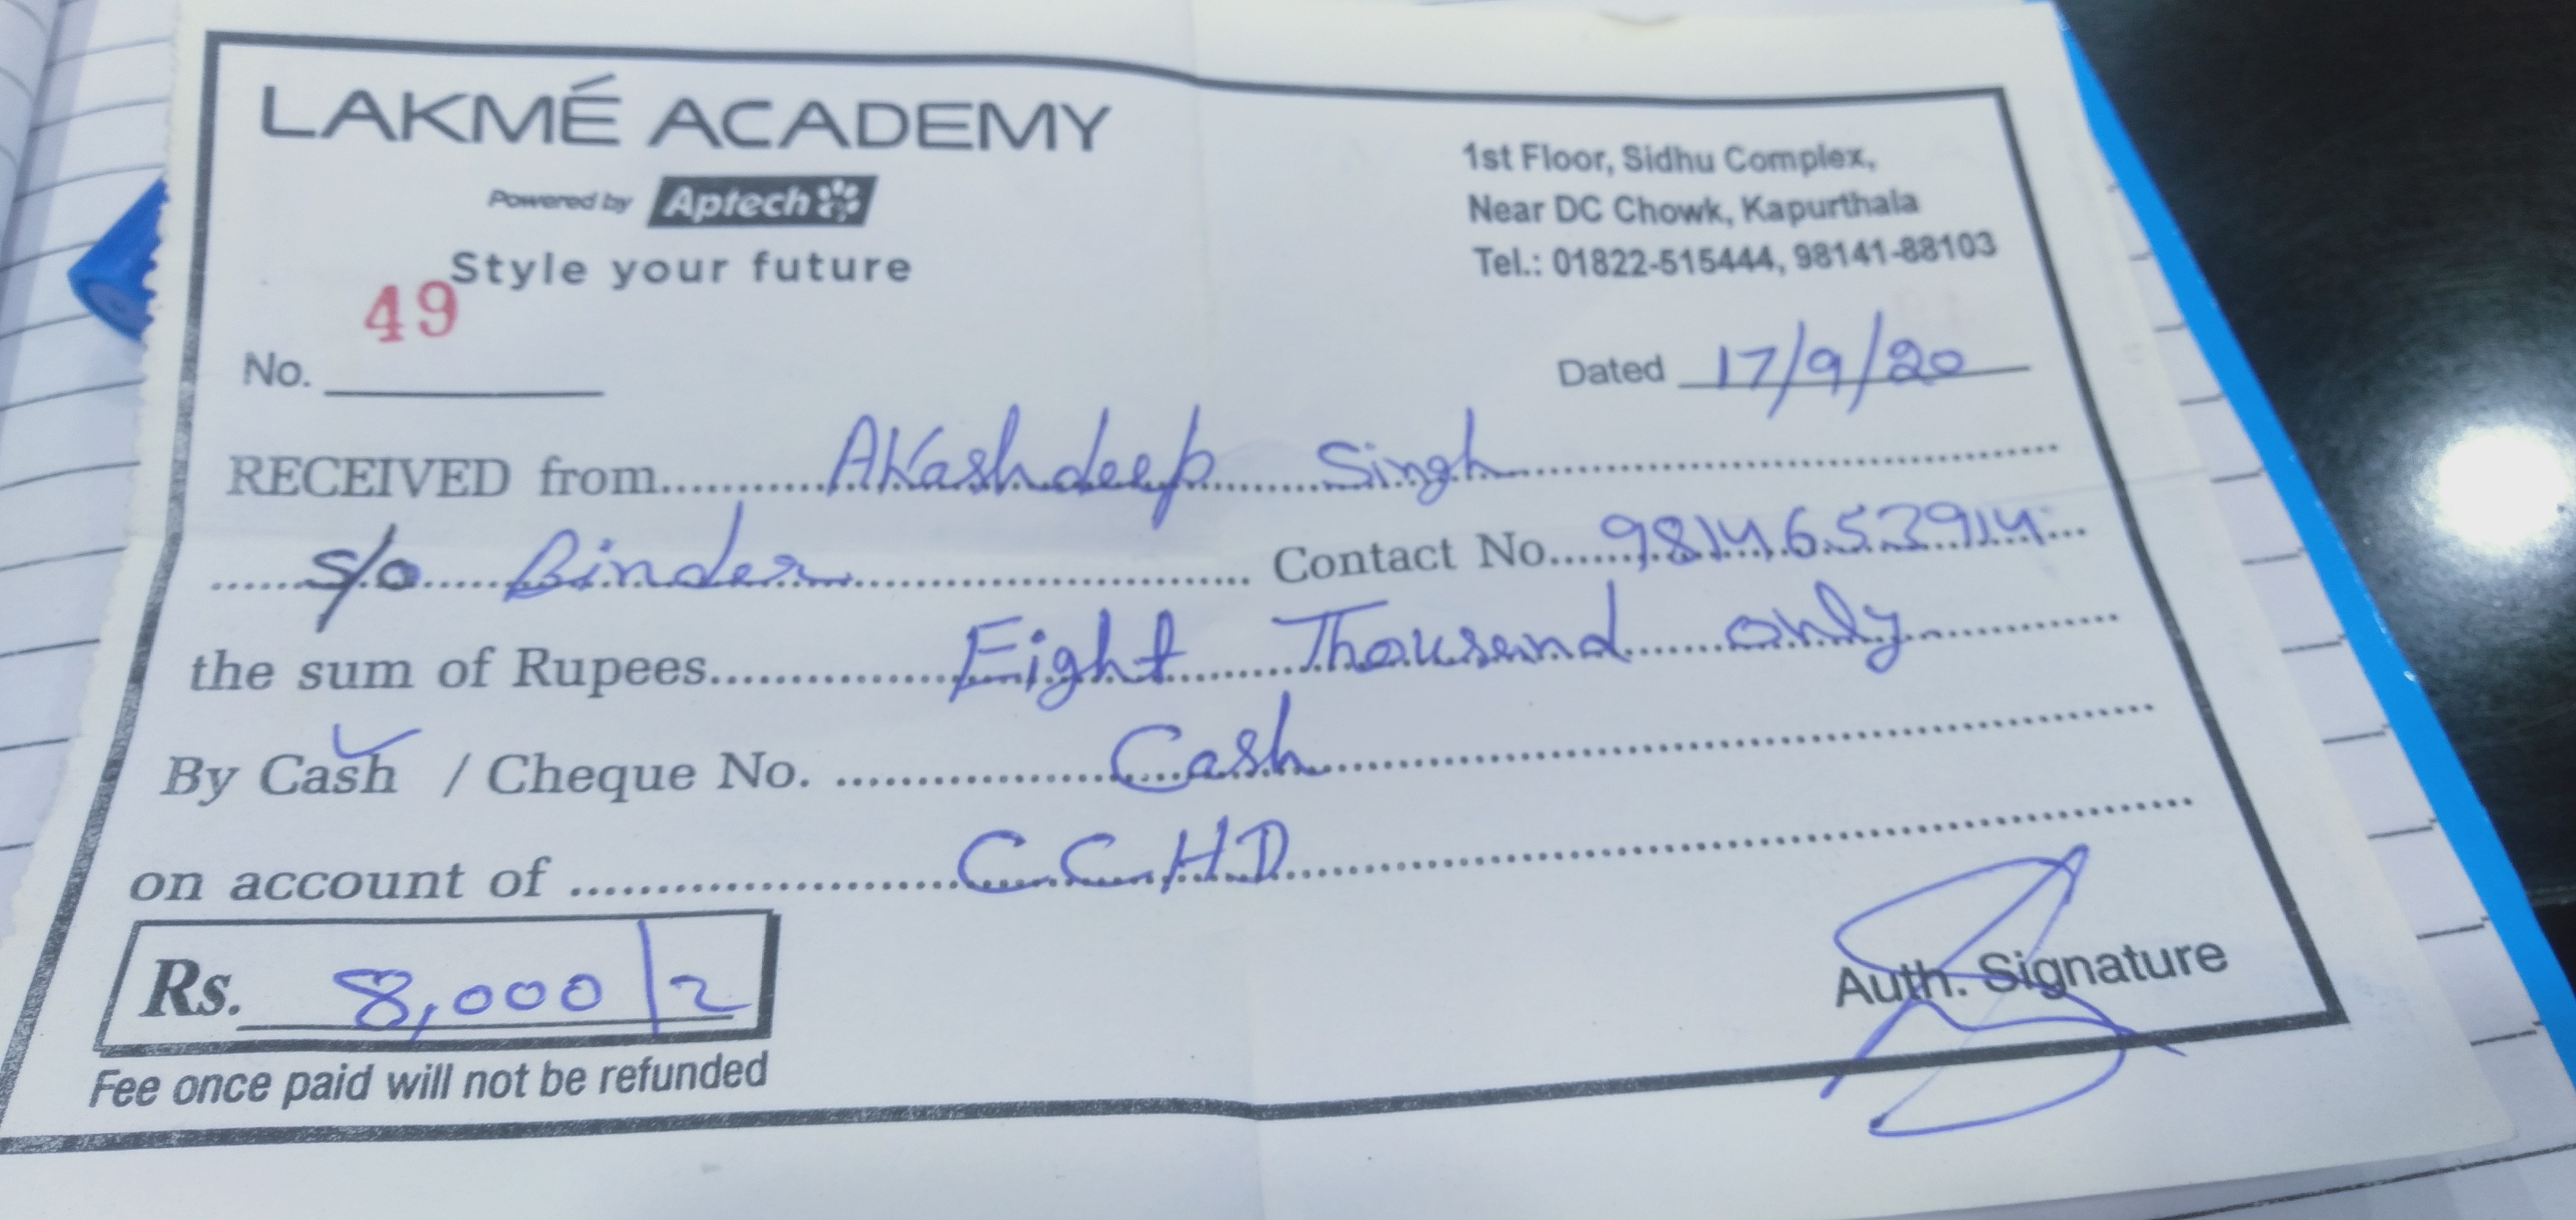 LAKMÉ ACADEMY
Powered by Aptech
Style your future
1st Floor, Sidhu Complex,
Near DC Chowk, Kapurthala
Tel.: 01822-515444, 98141-88103
No. 49
Dated 17/9/20
RECEIVED from AKashdeep Singh
s/o Binder Contact No. 9814653914
the sum of Rupees Eight Thousand only
By Cash / Cheque No. Cash
on account of CCHD
Rs. 8,000/2
Auth. Signature
Fee once paid will not be refunded